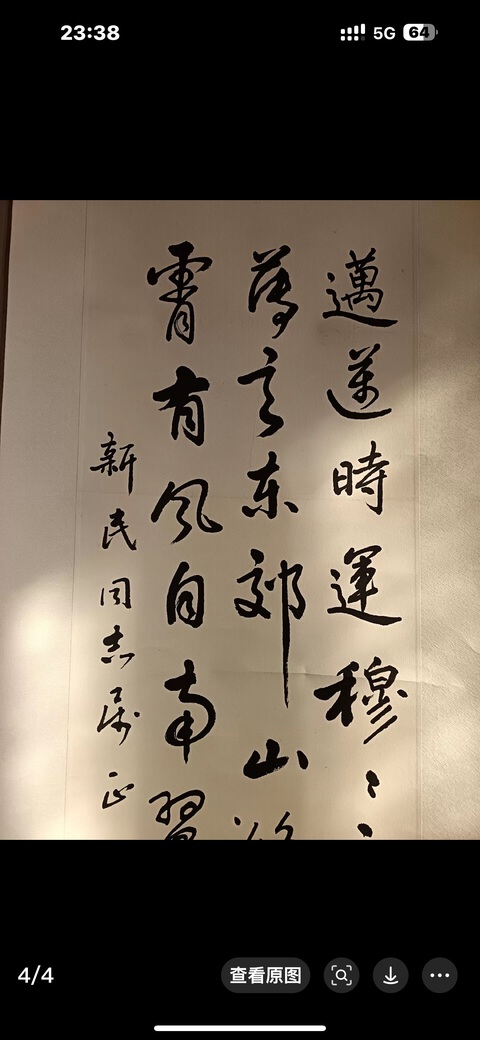 23:38
5G
64
邁邁時運穆〻
薄言东郊山
霄有风自南翼
新民同志属正
4/4
查看原图